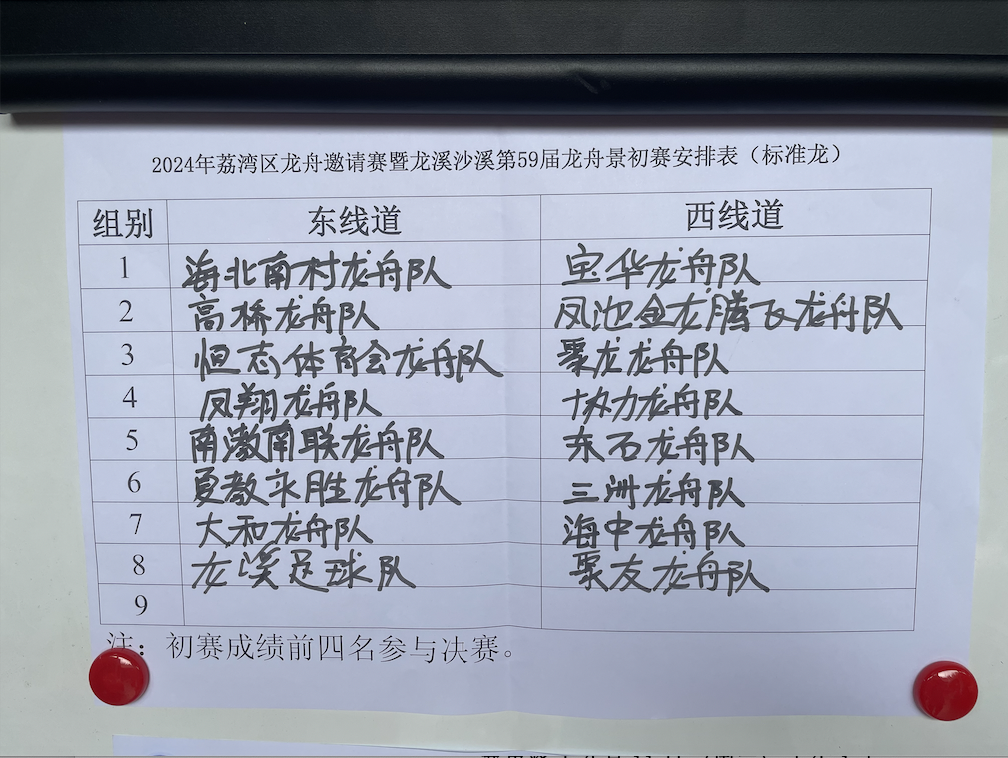 2024年荔湾区龙舟邀请赛暨龙溪沙溪第59届龙舟景初赛安排表（标准龙）
组别 东线道 西线道
1 海北南村龙舟队 宝华龙舟队
2 高桥龙舟队 凤池金龙腾飞龙舟队
3 恒志体育会龙舟队 聚龙龙舟队
4 凤翔龙舟队 协力龙舟队
5 南漖南联龙舟队 东石龙舟队
6 夏教永胜龙舟队 三洲龙舟队
7 大和龙舟队 海中龙舟队
8 龙溪足球队 聚友龙舟队
9
注：初赛成绩前四名参与决赛。